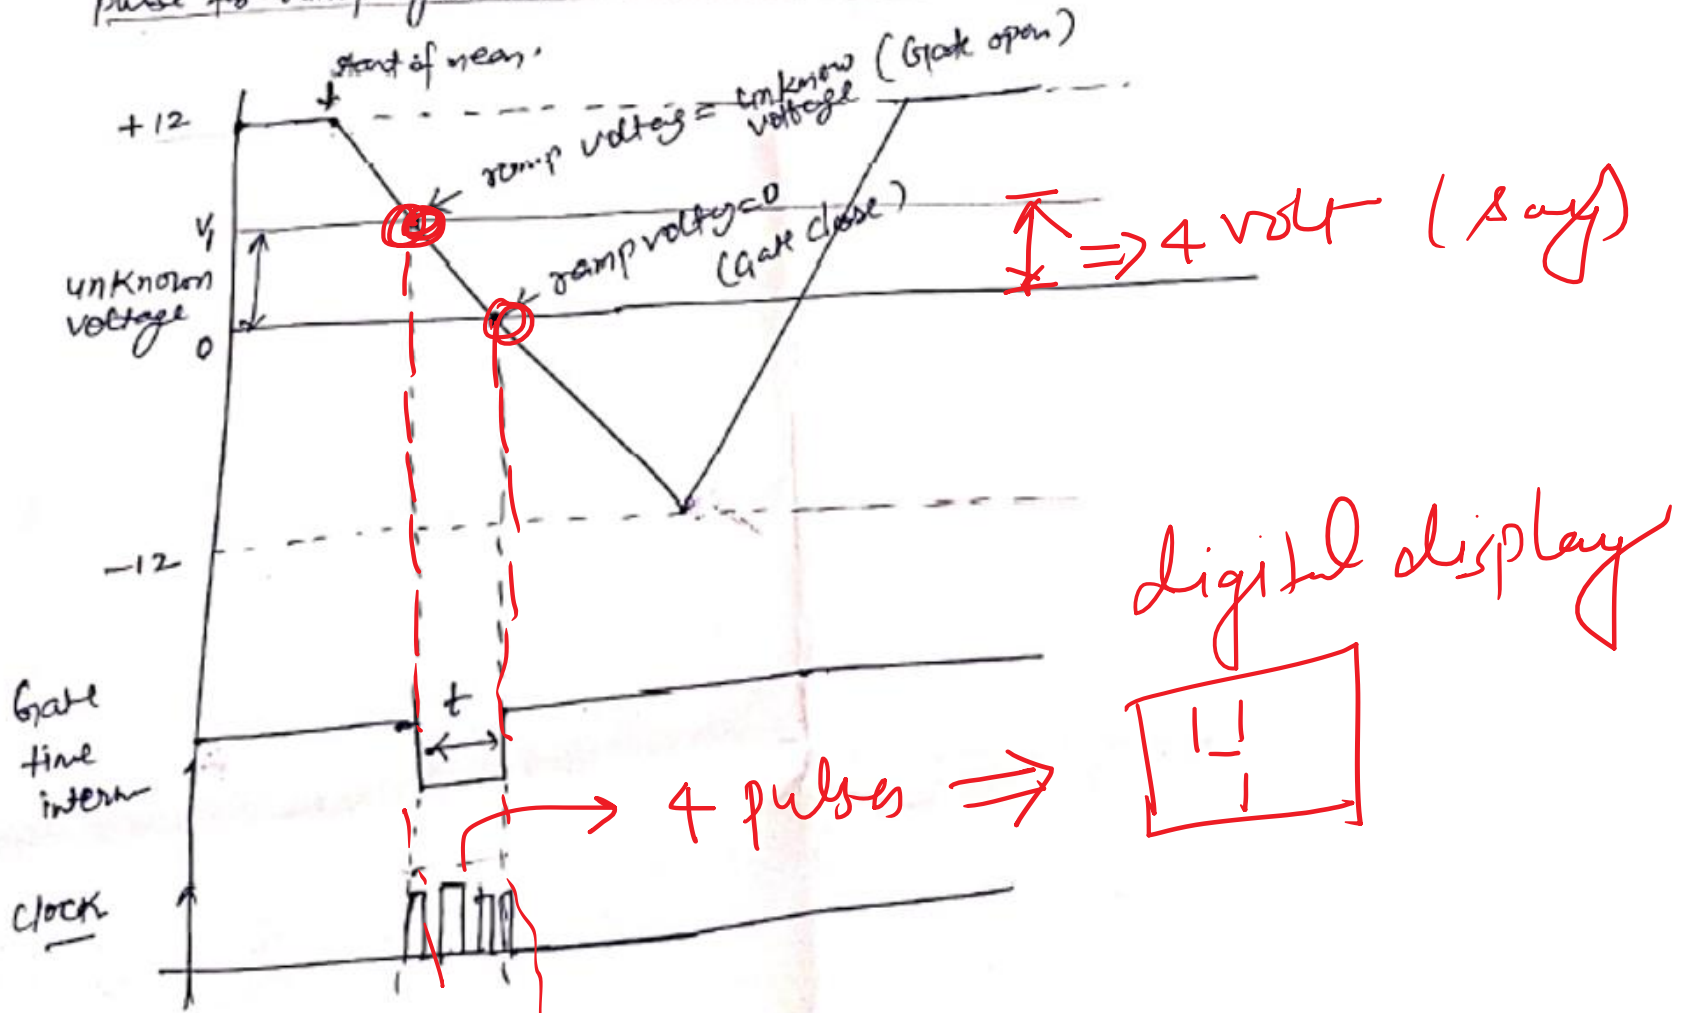 pulse for
start of mean.
+12
ramp voltag = unknow voltage (Gate open)
V1
ramp voltg=0
(Gate close)
⇒ 4 volt (say)
unknown
voltage
0
-12
digital display
Gate
time
interv
t
4 pulses ⇒
4
Clock